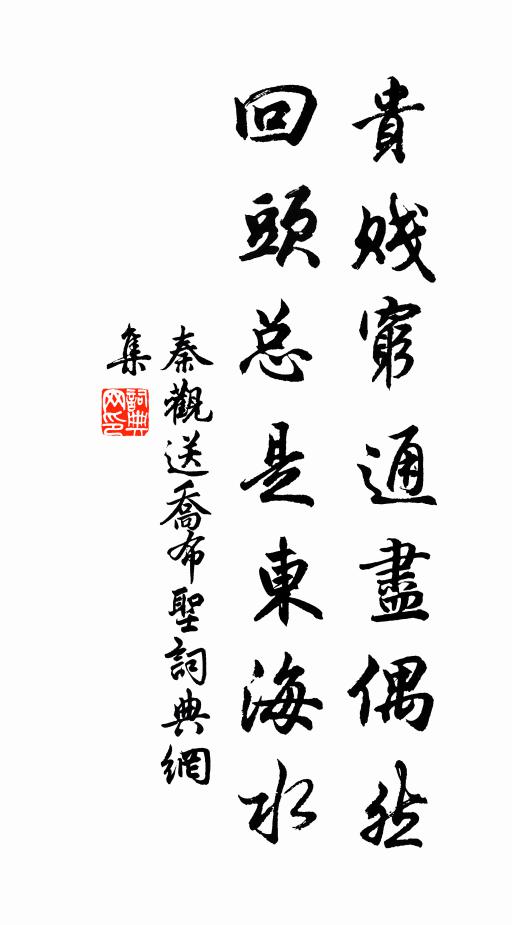 貴賤窮通盡偶然
回頭总是東海水
秦觀送喬布聖詞典網
集
詞典
网印